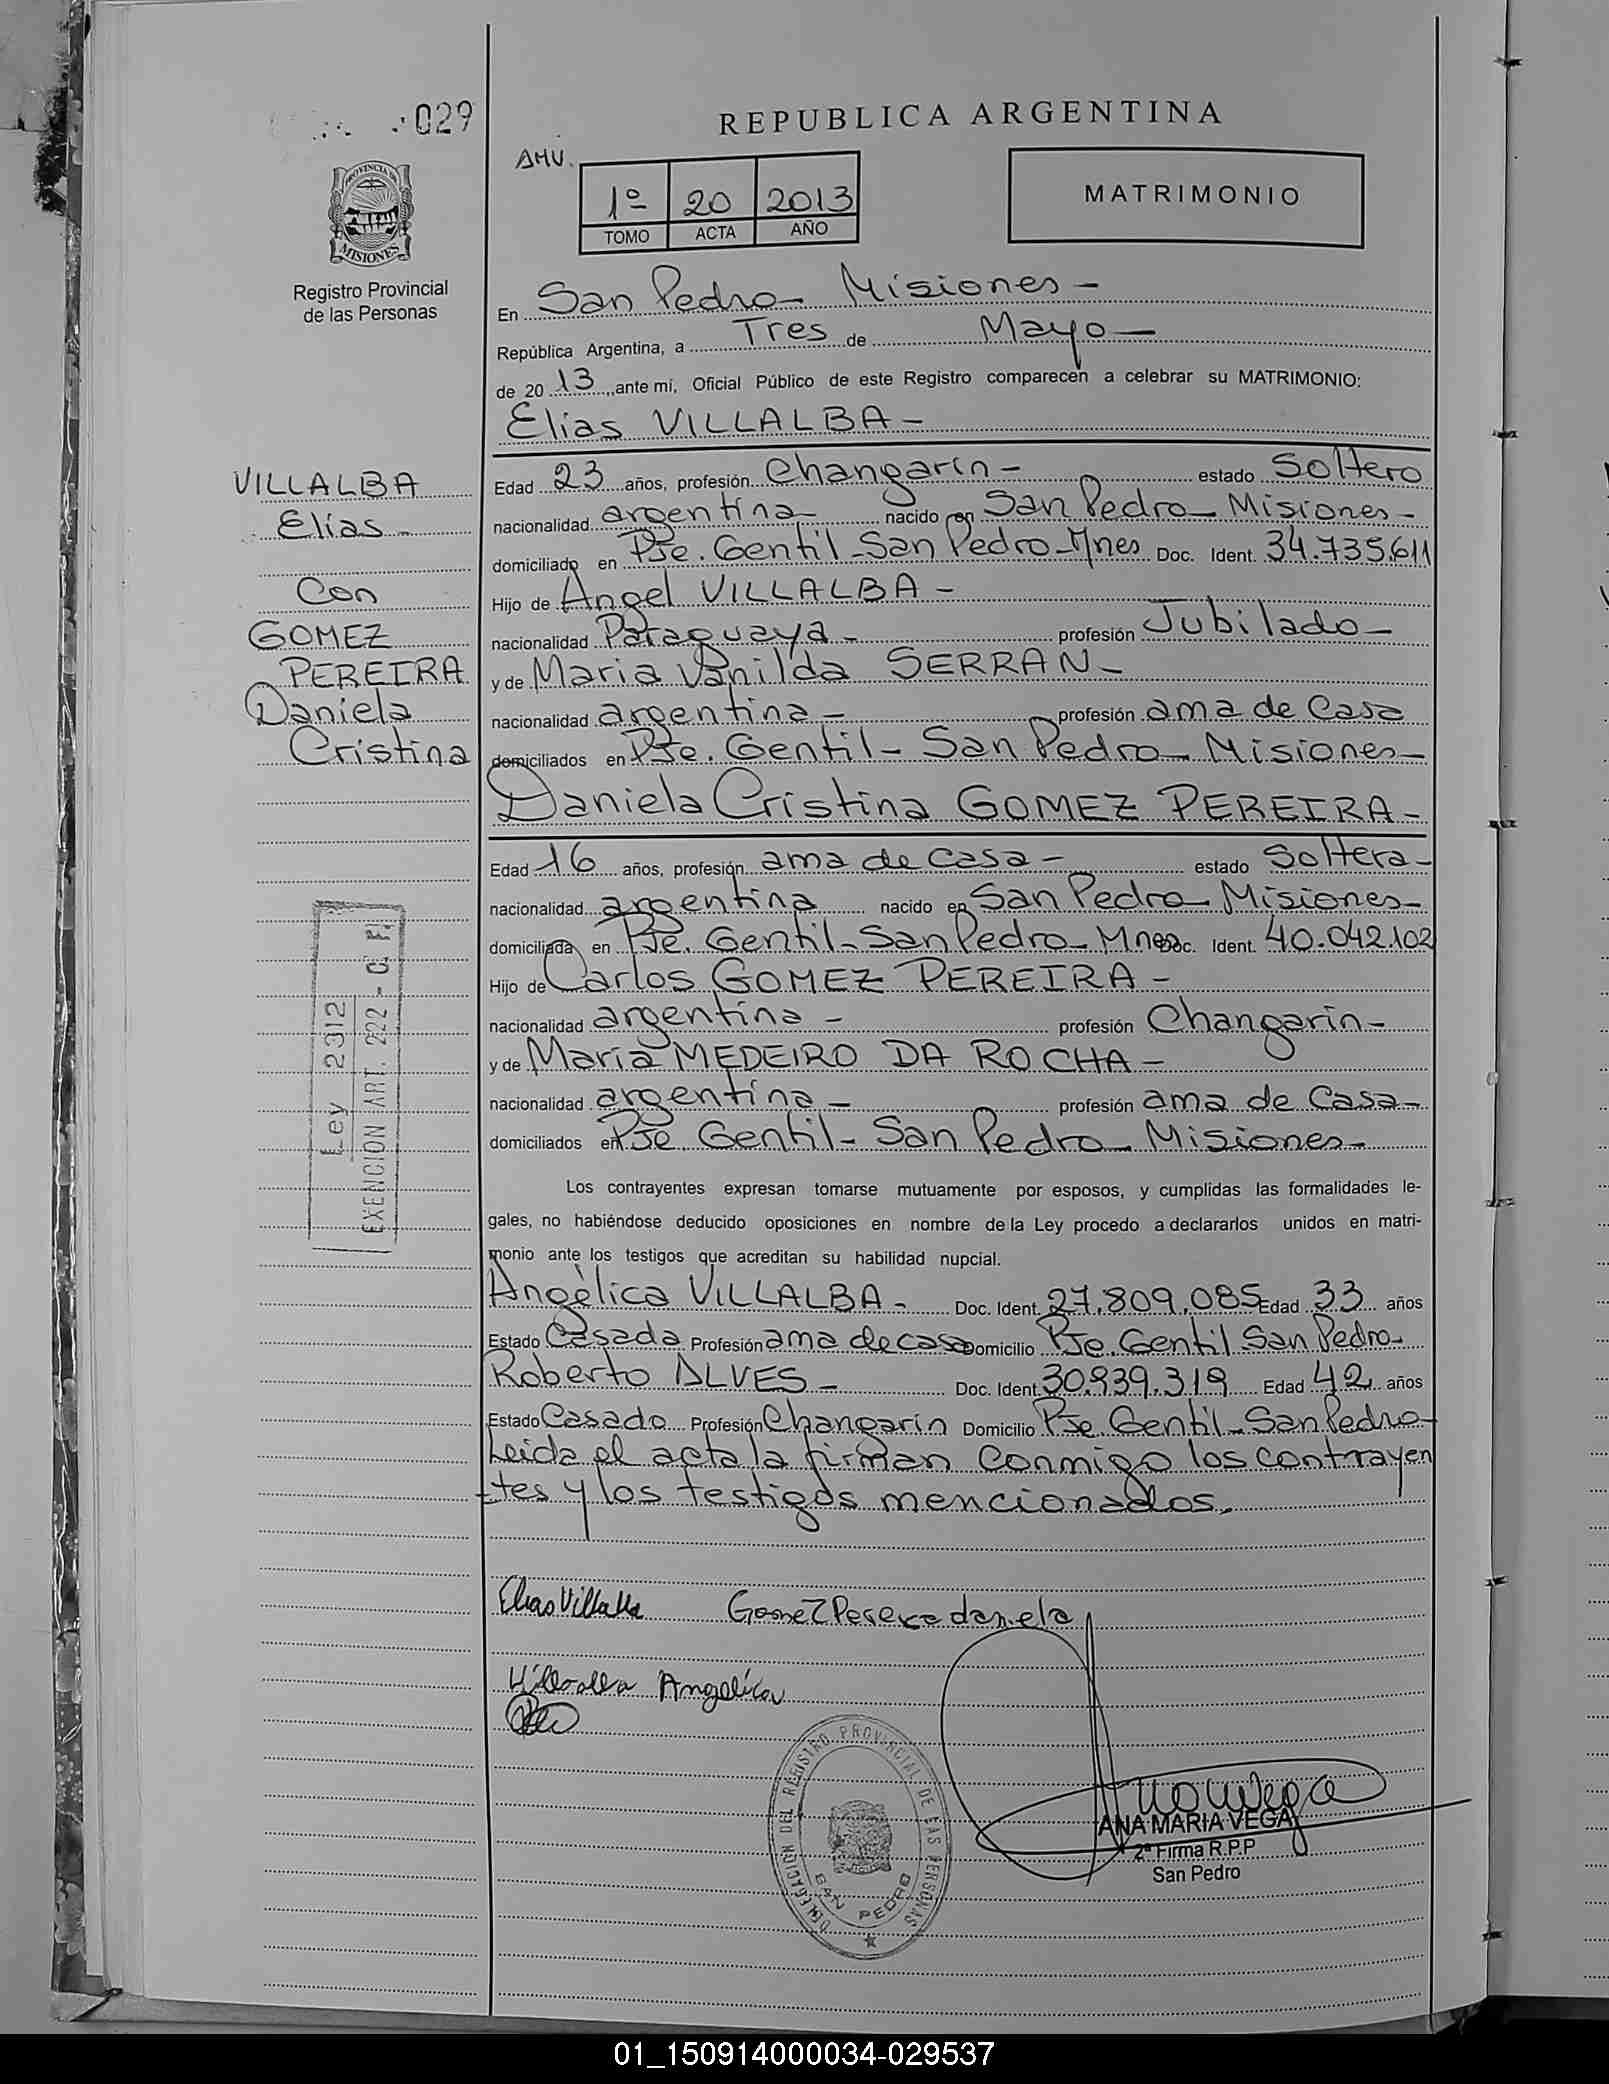 029
REPUBLICA ARGENTINA
AMV.
1º 20 2013
TOMO ACTA AÑO
MATRIMONIO
PROVINCIA DE
MISIONES
Registro Provincial
de las Personas
En San Pedro - Misiones -
República Argentina, a Tres de Mayo -
de 20 13, ante mi, Oficial Público de este Registro comparecen a celebrar su MATRIMONIO:
Elias VILLALBA -
VILLALBA
Elías -
Con
GOMEZ
PEREIRA
Daniela
Cristina
Edad 23 años, profesión Changarín - estado Soltero
nacionalidad argentina - nacido en San Pedro - Misiones -
domiciliado en Pje. Gentil - San Pedro - Mnes Doc. Ident. 34.735.611
Hijo de Angel VILLALBA -
nacionalidad Paraguaya - profesión Jubilado -
y de Maria Vanilda SERRAN -
nacionalidad argentina - profesión ama de Casa
domiciliados en Pje. Gentil - San Pedro - Misiones -
Daniela Cristina GOMEZ PEREIRA -
Edad 16 años, profesión ama de casa - estado Soltera -
nacionalidad argentina nacido en San Pedro - Misiones -
domiciliada en Pje. Gentil - San Pedro - Mnes Doc. Ident. 40.042.102
Hijo de Carlos GOMEZ PEREIRA -
nacionalidad argentina - profesión Changarín -
y de María MEDEIRO DA ROCHA -
nacionalidad argentina - profesión ama de Casa -
domiciliados en Pje Gentil - San Pedro - Misiones -
Ley 2312
EXENCION ART. 222 - C. F.
Los contrayentes expresan tomarse mutuamente por esposos, y cumplidas las formalidades le-
gales, no habiéndose deducido oposiciones en nombre de la Ley procedo a declararlos unidos en matri-
monio ante los testigos que acreditan su habilidad nupcial.
Angélica VILLALBA - Doc. Ident. 27.809.085 Edad 33 años
Estado Casada Profesión ama de casa Domicilio Pje. Gentil San Pedro -
Roberto ALVES - Doc. Ident. 30.939.319 Edad 42 años
Estado Casado Profesión Changarín Domicilio Pje. Gentil - San Pedro -
Leida el acta la firman conmigo los contrayen
-tes y los testigos mencionados.
Elias Villalba Gomez Pereira daniela
Villalba Angelica
DELEGACION DEL REGISTRO PROVINCIAL DE LAS PERSONAS
SAN PEDRO
ANA MARIA VEGA
2ª Firma R.P.P
San Pedro
01_150914000034-029537